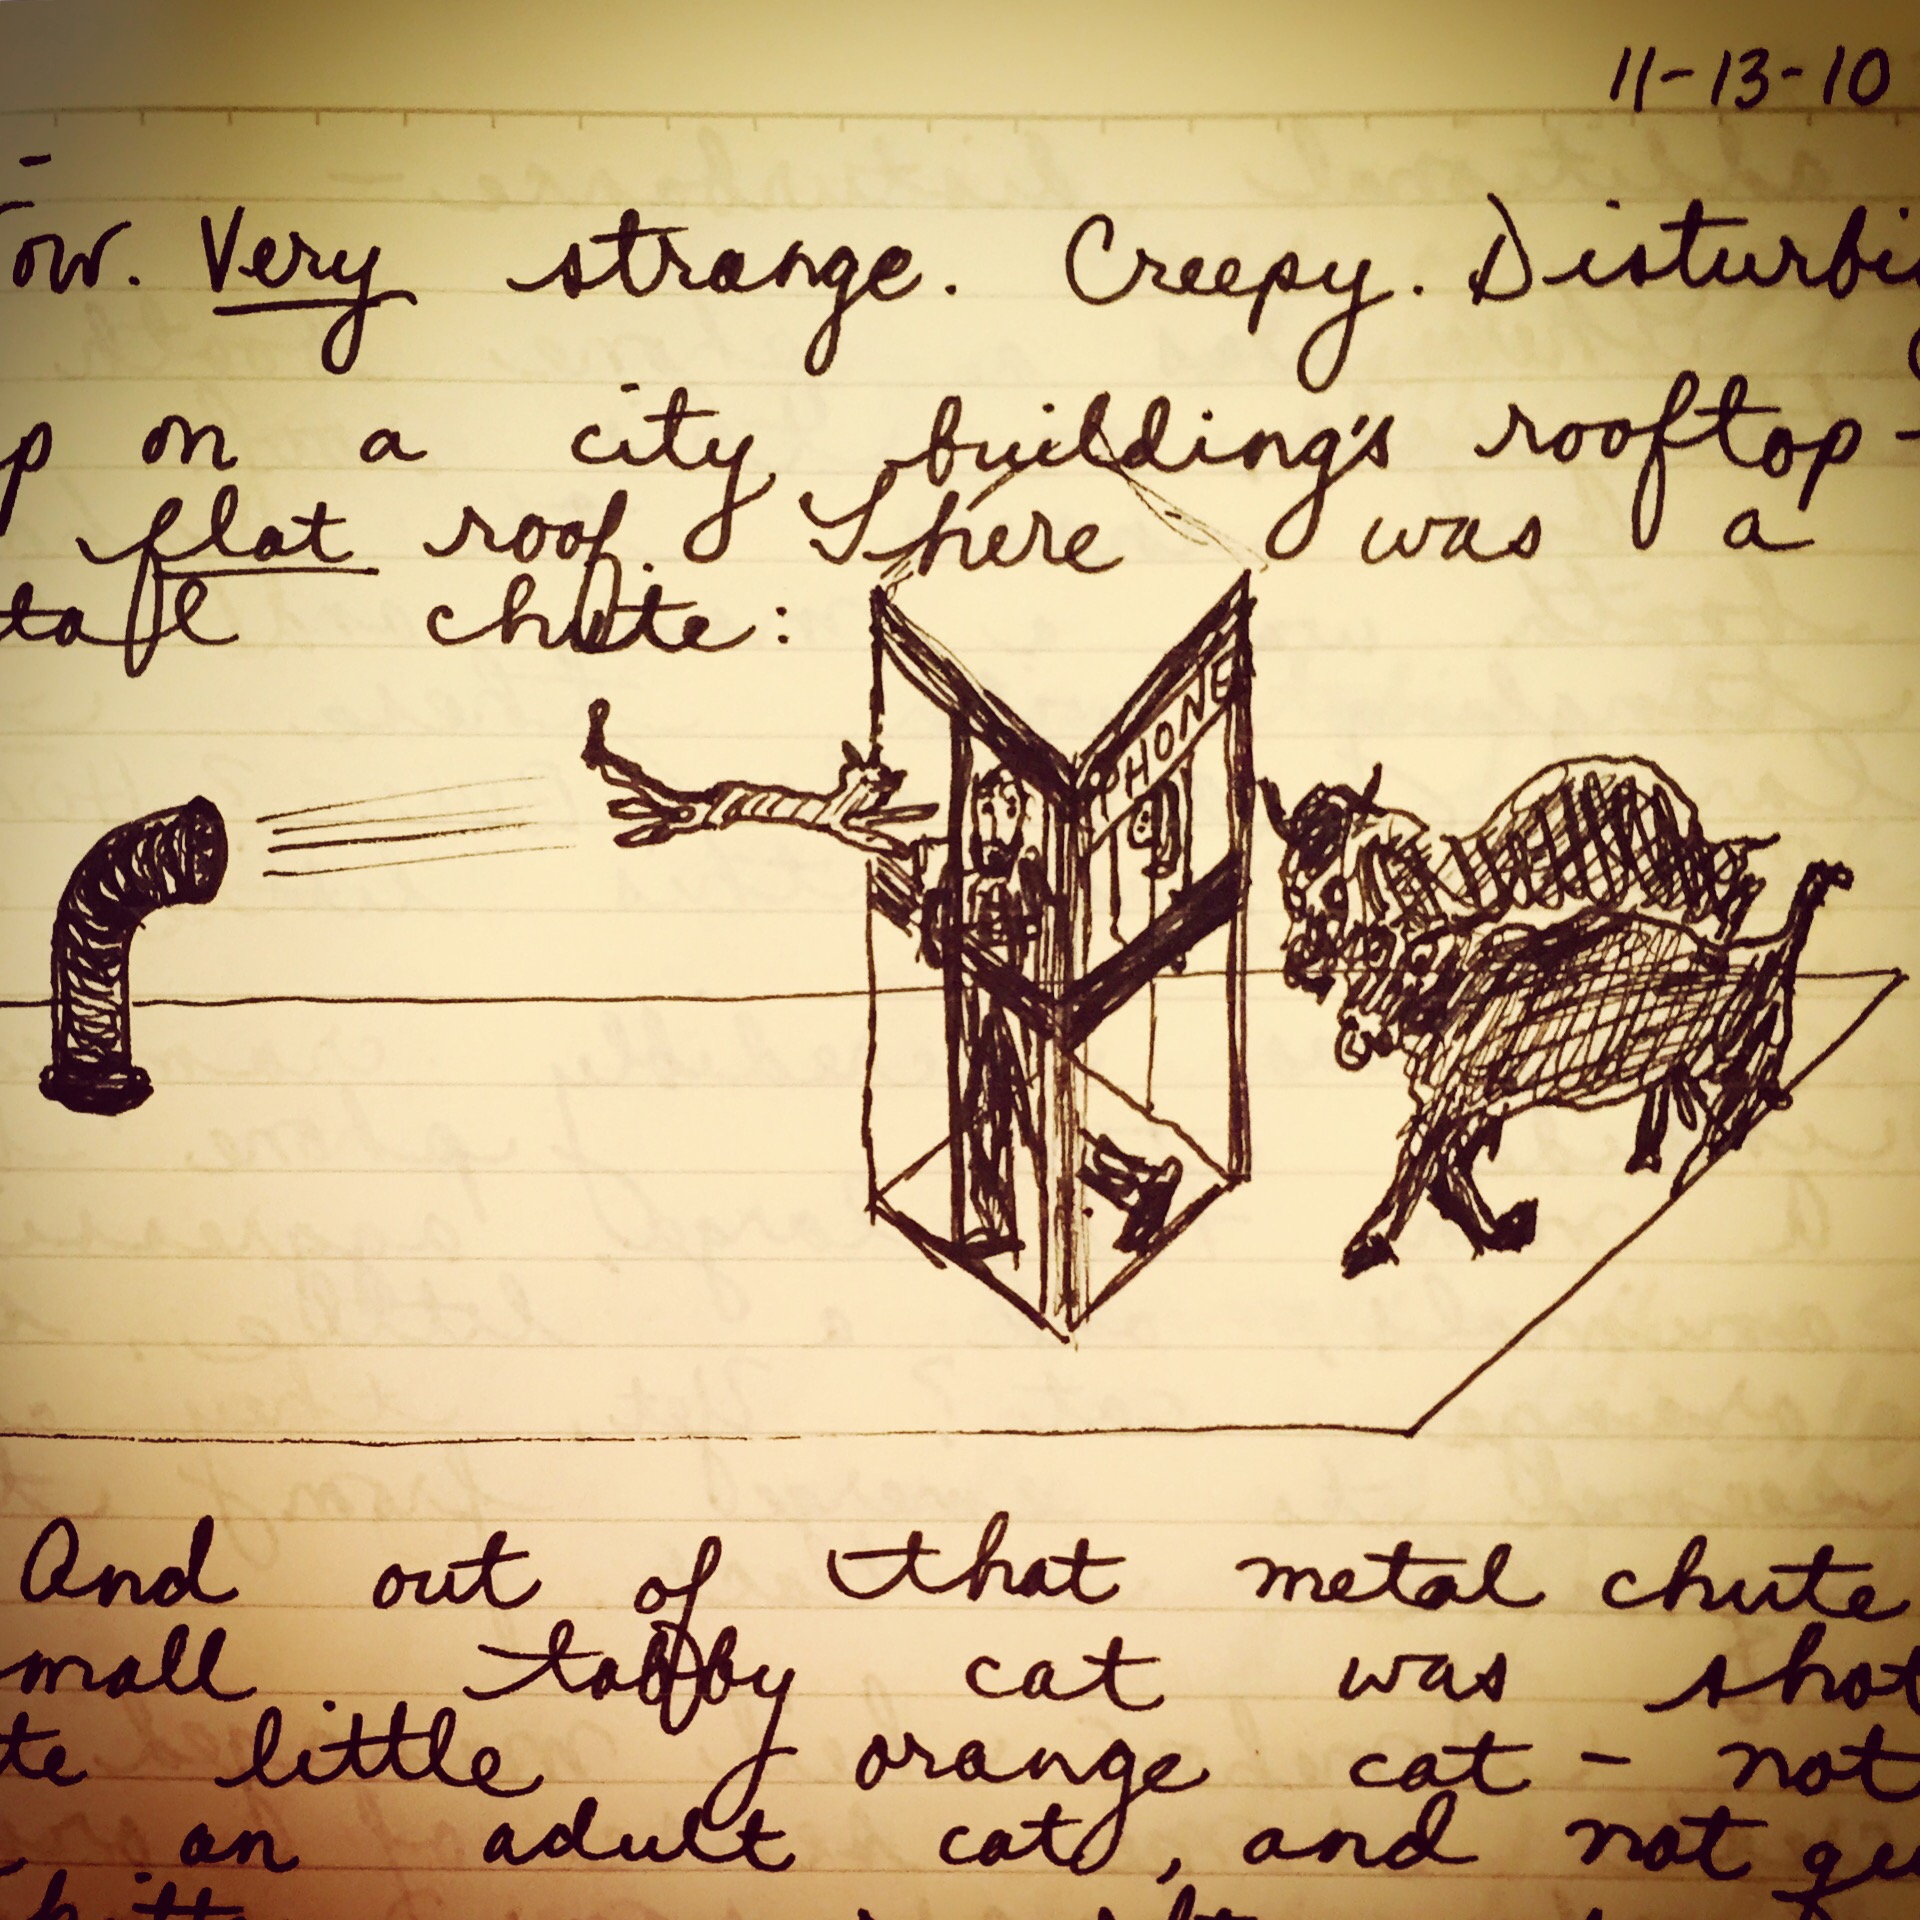 11-13-10
ow. Very strange. Creepy. Disturbi
p on a city building's rooftop -
flat roof. There was a
tal chute:
PHONE
And out of that metal chute
mall tabby cat was shot
te little orange cat - not
an adult cat, and not qu